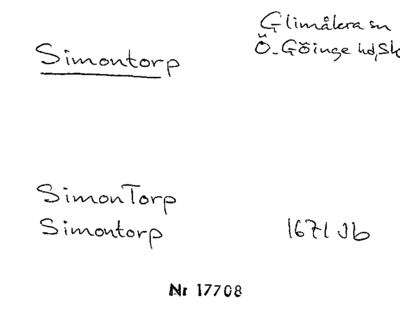 Glimåkra sn
Simontorp
Ö. Göinge hd, Sk
SimonTorp
Simontorp 1671 Jb
Nr 17708